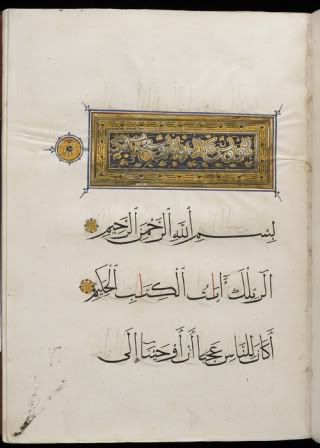 بِسْمِ اللَّهِ الرَّحْمَٰنِ الرَّحِيمِ
الر تِلْكَ آيَاتُ الْكِتَابِ الْحَكِيمِ
أَكَانَ لِلنَّاسِ عَجَبًا أَنْ أَوْحَيْنَا إِلَىٰ